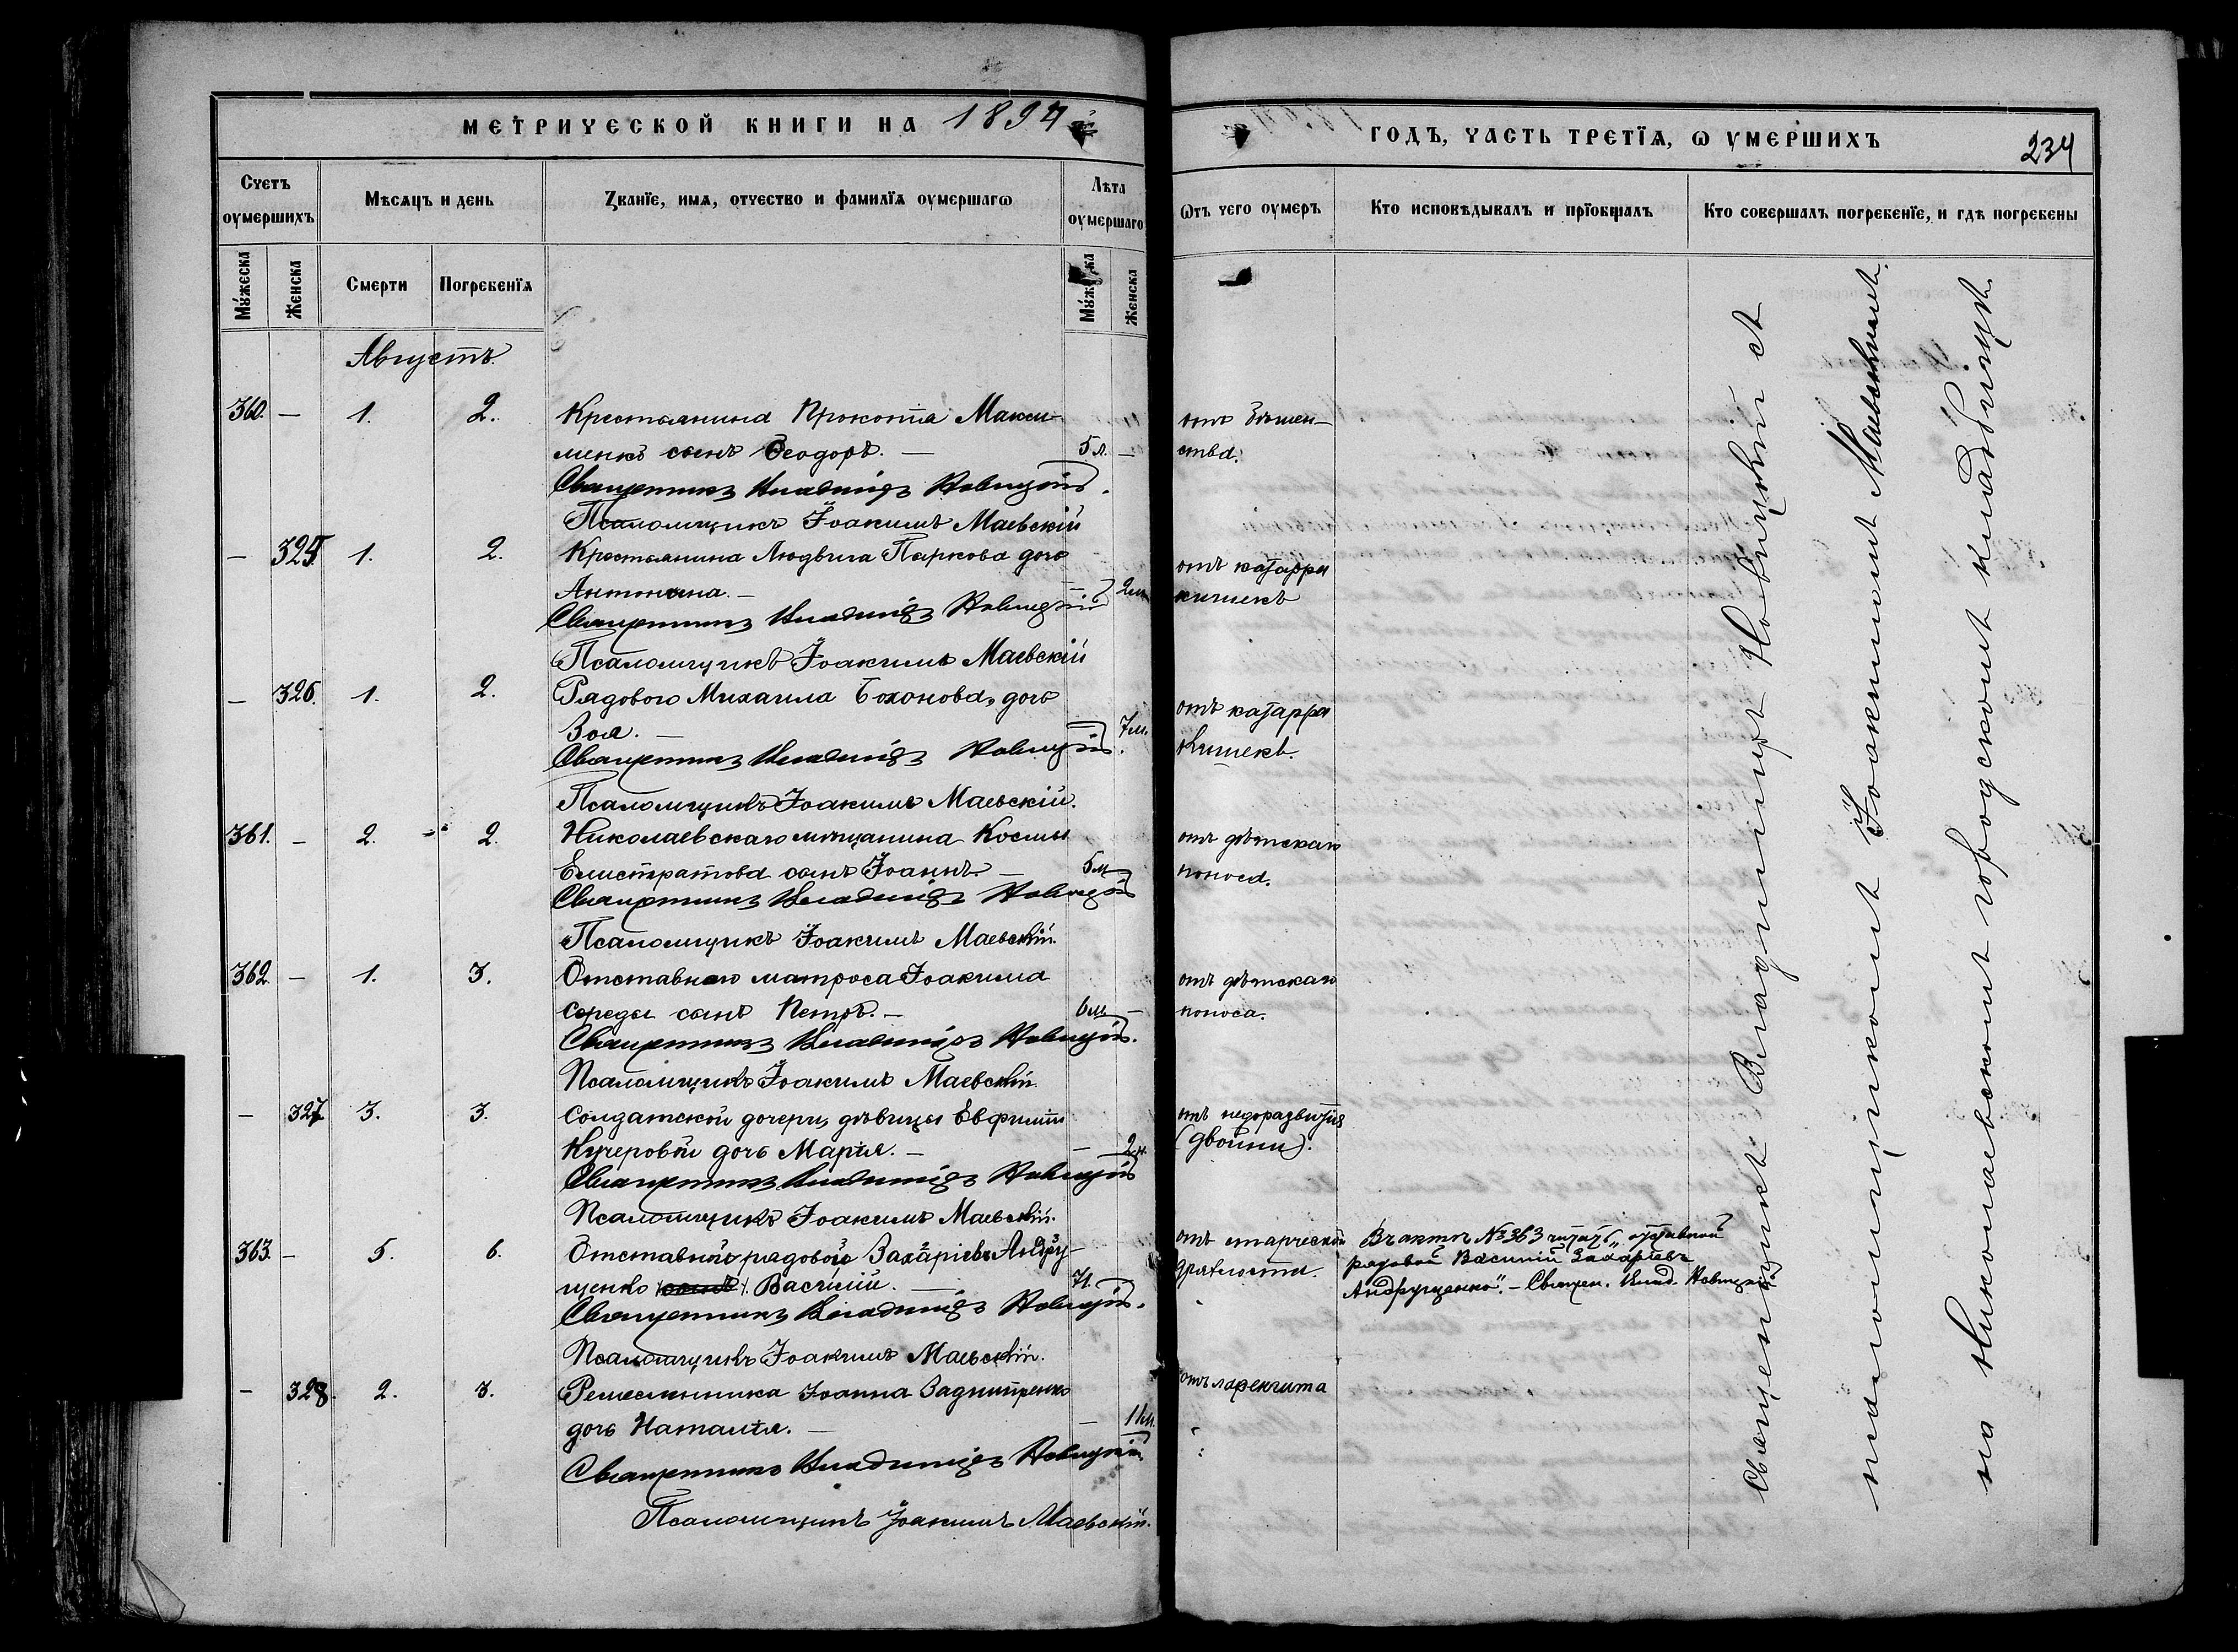 МЕТРИЧЕСКОЙ КНИГИ НА 1894
ГОДЪ, ЧАСТЬ ТРЕТЇѦ, Ѡ УМЕРШИХЪ
234
Счетъ оумершихъ
Мѣсѧцъ и день
Званїе, имѧ, отчество и фамилїѧ оумершагѡ
Лѣта оумершаго
Ѿтъ чего оумеръ
Кто исповѣдывалъ и прїобщалъ
Кто совершалъ погребенїе, и гдѣ погребены
Мꙋжеска
Женска
Смерти
Погребенїѧ
Мꙋжеска
Женска
Августъ.
360. — 1. 2. Крестьянина Прокопія Макси-
менко сынъ Ѳеодоръ. — 5 л. —
отъ
ства.
Священникъ Владиміръ Новицкій.
Псаломщикъ Іоакимъ Маевскій
— 325. 1. 2. Крестьянина Людвига Паркова дочь
Антонина. — — 2 м.
отъ катарра
кишекъ
Священникъ Владиміръ Новицкій
Псаломщикъ Іоакимъ Маевскій
— 326. 1. 2. Рядового Михаила Бохонова, дочь
Зоя. — — 7 м.
отъ катарра
кишекъ.
Священникъ Владиміръ Новицкій.
Псаломщикъ Іоакимъ Маевскій.
361. — 2. 2. Николаевскаго мѣщанина Космы
Елистратова сынъ Іоаннъ. — 5 м
отъ дѣтскаго
поноса.
Священникъ Владиміръ Новицкій
Псаломщикъ Іоакимъ Маевскій.
362. — 1. 3. Отставного матроса Іоакима
Середы сынъ Петръ. — 6 м. —
отъ дѣтскаго
поноса.
Священникъ Владиміръ Новицкій.
Псаломщикъ Іоакимъ Маевскій.
— 327. 3. 3. Солдатской дочери, дѣвицы Евфиміи
Кучеровой дочь Марія. — — 2 н.
отъ недоразвитія
(двойни).
Священникъ Владиміръ Новицкій
Псаломщикъ Іоакимъ Маевскій.
363. — 5. 6. Отставной рядовой Захаріевъ Андру-
щенко (сынъ). Василій. — 71.
отъ старческой
дряхлости.
Въ актѣ № 363 читать „отставной
рядовой Василій Захаріевъ
Андрущенко“. — Священ. Влад. Новицкій
Священникъ Владиміръ Новицкій.
Псаломщикъ Іоакимъ Маевскій.
— 328. 2. 3. Ремесленника Іоанна Заднипренко
дочь Наталія. — — 11 м.
отъ ларенгита
Священникъ Владиміръ Новицкій
Псаломщикъ Іоакимъ Маевскій.
Священникъ Владиміръ Новицкій съ
псаломщикомъ Іоакимомъ Маевскимъ.
на Николаевскомъ городскомъ кладбищѣ.